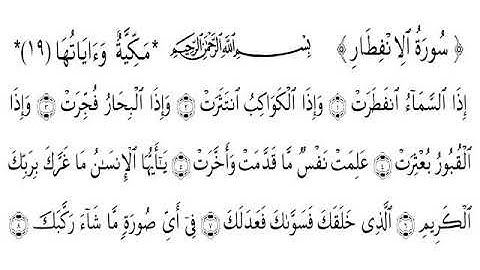 ﴿ سُورَةُ الِانْفِطَارِ ﴾ بِسْمِ اللَّهِ الرَّحْمَٰنِ الرَّحِيمِ *مَكِّيَّةٌ وَءَايَاتُهَا (١٩)*
إِذَا السَّمَآءُ انفَطَرَتْ ۝١ وَإِذَا الْكَوَاكِبُ انتَثَرَتْ ۝٢ وَإِذَا الْبِحَارُ فُجِّرَتْ ۝٣ وَإِذَا
الْقُبُورُ بُعْثِرَتْ ۝٤ عَلِمَتْ نَفْسٌ مَّا قَدَّمَتْ وَأَخَّرَتْ ۝٥ يَٰٓأَيُّهَا الْإِنسَٰنُ مَا غَرَّكَ بِرَبِّكَ
الْكَرِيمِ ۝٦ الَّذِى خَلَقَكَ فَسَوَّىٰكَ فَعَدَلَكَ ۝٧ فِىٓ أَىِّ صُورَةٍ مَّا شَآءَ رَكَّبَكَ ۝٨